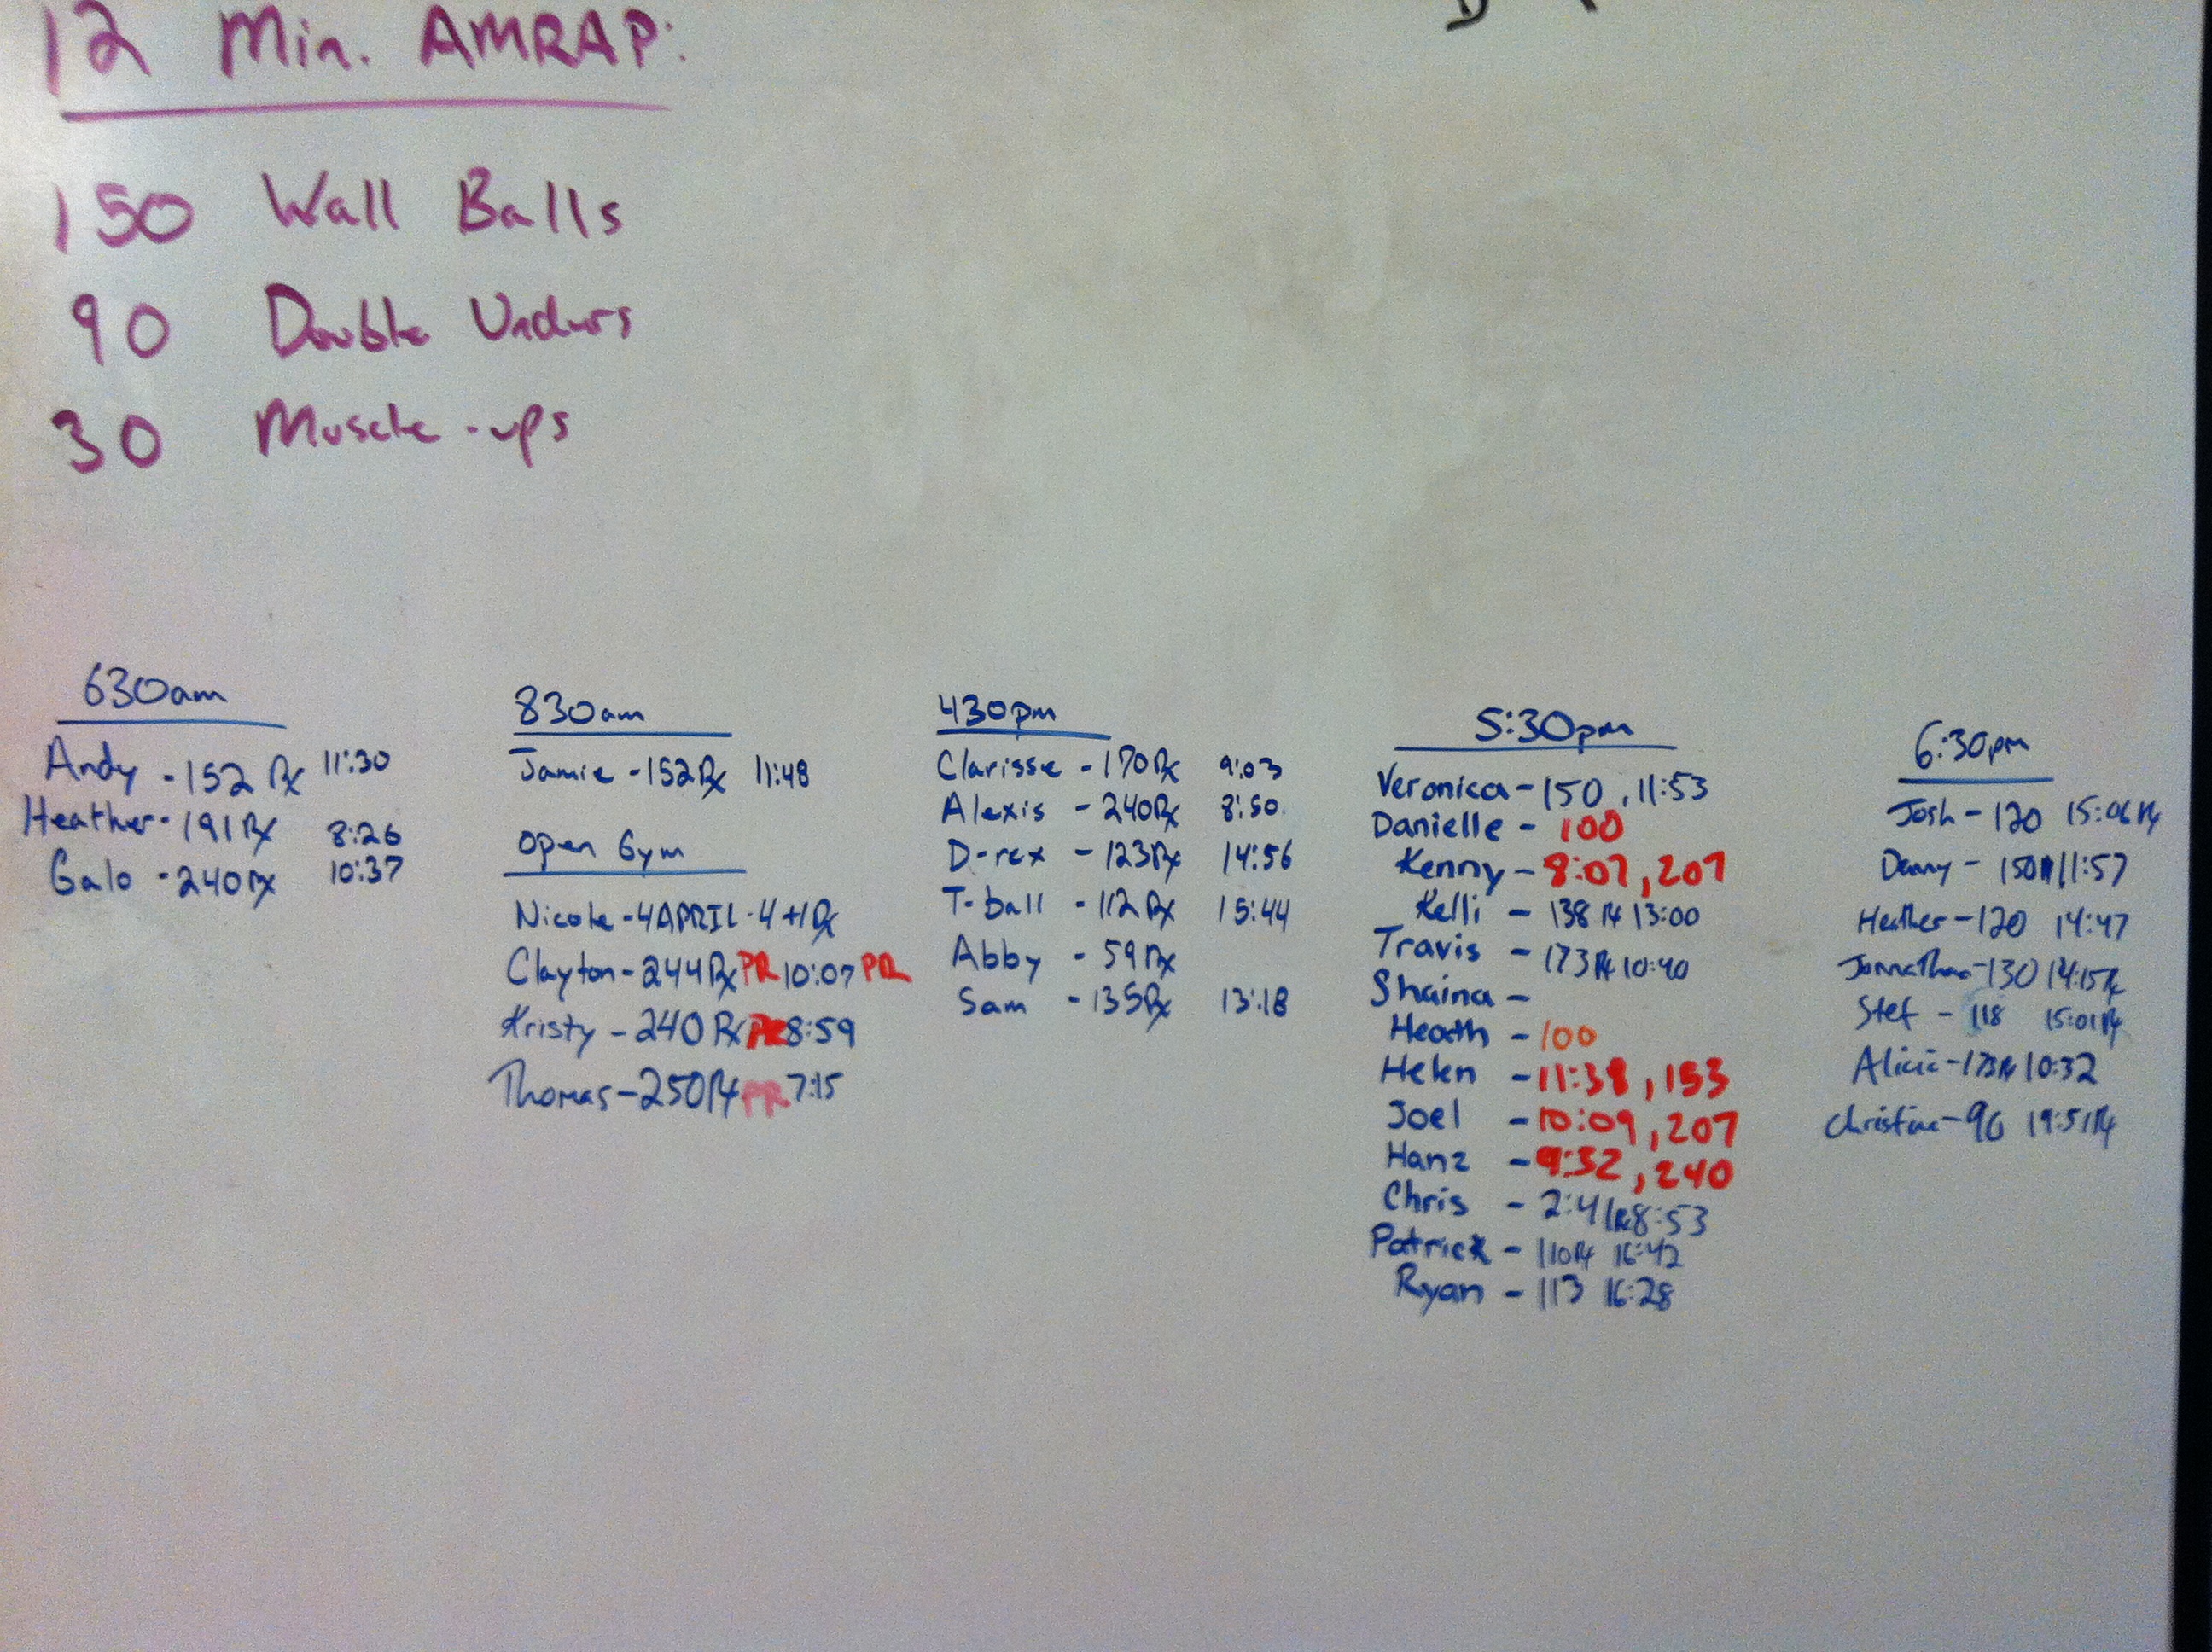 12 Min. AMRAP:
150 Wall Balls
90 Double Unders
30 Muscle-ups
630am
Andy - 152 Rx 11:30
Heather - 191 Rx 8:26
Galo - 240 Rx 10:37
830am
Jamie - 152 Rx 11:48
open Gym
Nicole - 4APRIL - 4+1Rx
Clayton - 244 Rx PR 10:07 PR
Kristy - 240 Rx PR 8:59
Thomas - 250 Rx PR 7:15
430pm
Clarisse - 170 Rx 9:03
Alexis - 240 Rx 8:50
D-rex - 123 Rx 14:56
T-ball - 112 Rx 15:44
Abby - 59 Rx
Sam - 135 Rx 13:18
5:30pm
Veronica - 150, 11:53
Danielle - 100
Kenny - 8:07, 207
Kelli - 138 Rx 13:00
Travis - 173 Rx 10:40
Shaina -
Heath - 100
Helen - 11:38, 153
Joel - 10:09, 207
Hanz - 9:32, 240
Chris - 2:41 Rx 8:53
Patrick - 110 Rx 16:42
Ryan - 113 16:28
6:30pm
Josh - 120 15:06 Rx
Danny - 150 Rx 11:57
Heather - 120 14:47
Jonnathan - 130 14:15 Rx
Stef - 118 15:01 Rx
Alicia - 173 Rx 10:32
Christine - 90 19:51 Rx